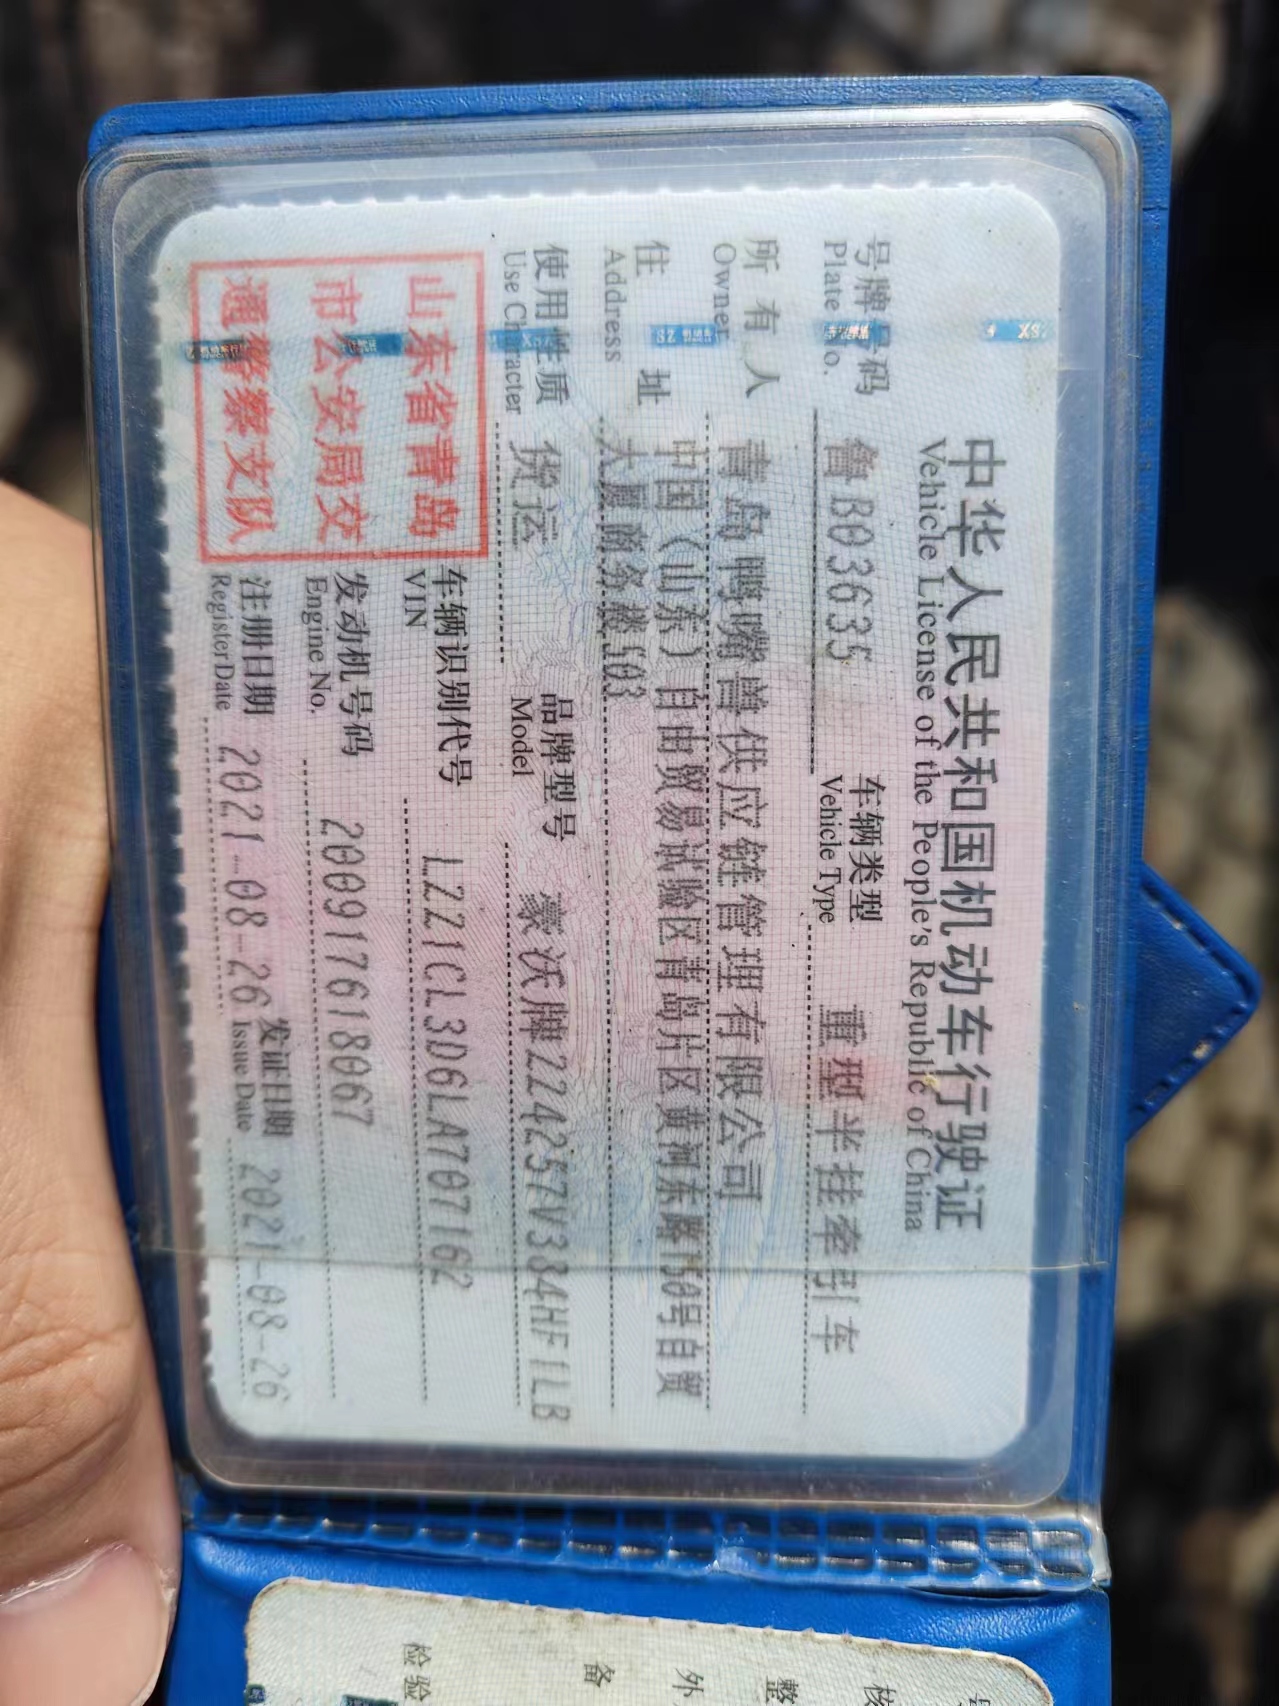 中华人民共和国机动车行驶证
Vehicle License of the People's Republic of China
号牌号码 鲁B03635 车辆类型 重型半挂牵引车
Plate No. Vehicle Type
所有人 青岛鸭嘴兽供应链管理有限公司
Owner
住址 中国（山东）自由贸易试验区青岛片区黄河东路150号自贸
Address 大厦商务楼503
使用性质 货运 品牌型号 豪沃牌ZZ4257V384HF1LB
Use Character Model
山东省青岛
市公安局交
通警察支队
车辆识别代号 LZZ1CL3D6LA707162
VIN
发动机号码 200917618067
Engine No.
注册日期 2021-08-26 发证日期 2021-08-26
Register Date Issue Date
核
整
外
备
检验